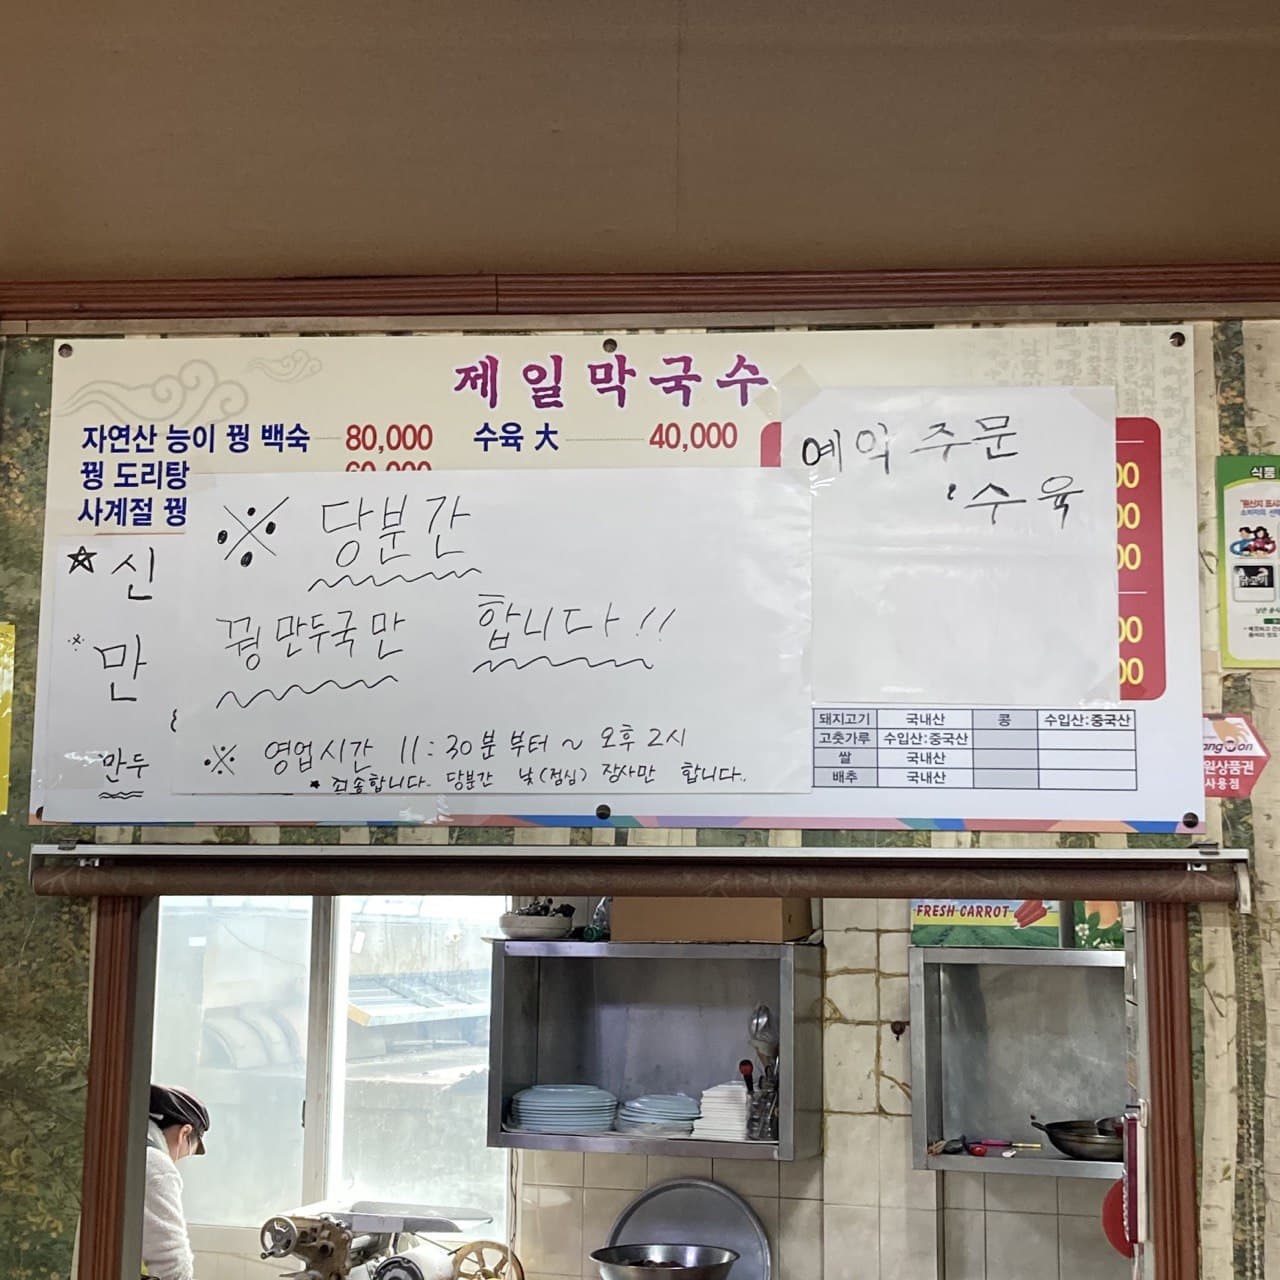 제일막국수
자연산 능이 꿩 백숙 80,000
수육 大 40,000
꿩 도리탕 60,000
사계절 꿩
☆ 신
※ 만
만두
※ 당분간
꿩 만두국만 합니다!!
※ 영업시간 11:30분 부터 ~ 오후 2시
* 죄송합니다. 당분간 낮(점심) 장사만 합니다.
예약 주문
수육
00
00
00
00
00
돼지고기 국내산 콩 수입산:중국산
고춧가루 수입산:중국산
쌀 국내산
배추 국내산
식품
닭고기
angwon
원상품권
사용점
FRESH CARROT